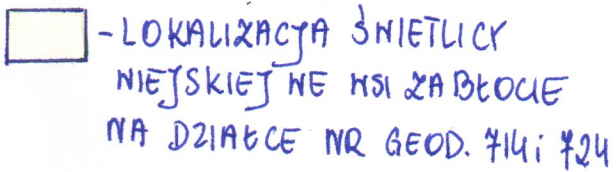 - LOKALIZACJA ŚWIETLICY
WIEJSKIEJ WE WSI ZABŁOCIE
NA DZIAŁCE NR GEOD. 714 i 724